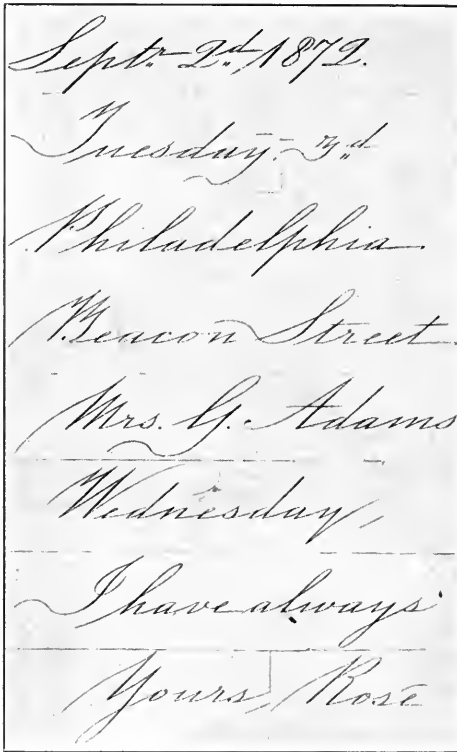 Septr. 2d, 1872.
Tuesday. 3d
Philadelphia.
Beacon Street.
Mrs. G. Adams
Wednesday,
I have always
Yours, Rose